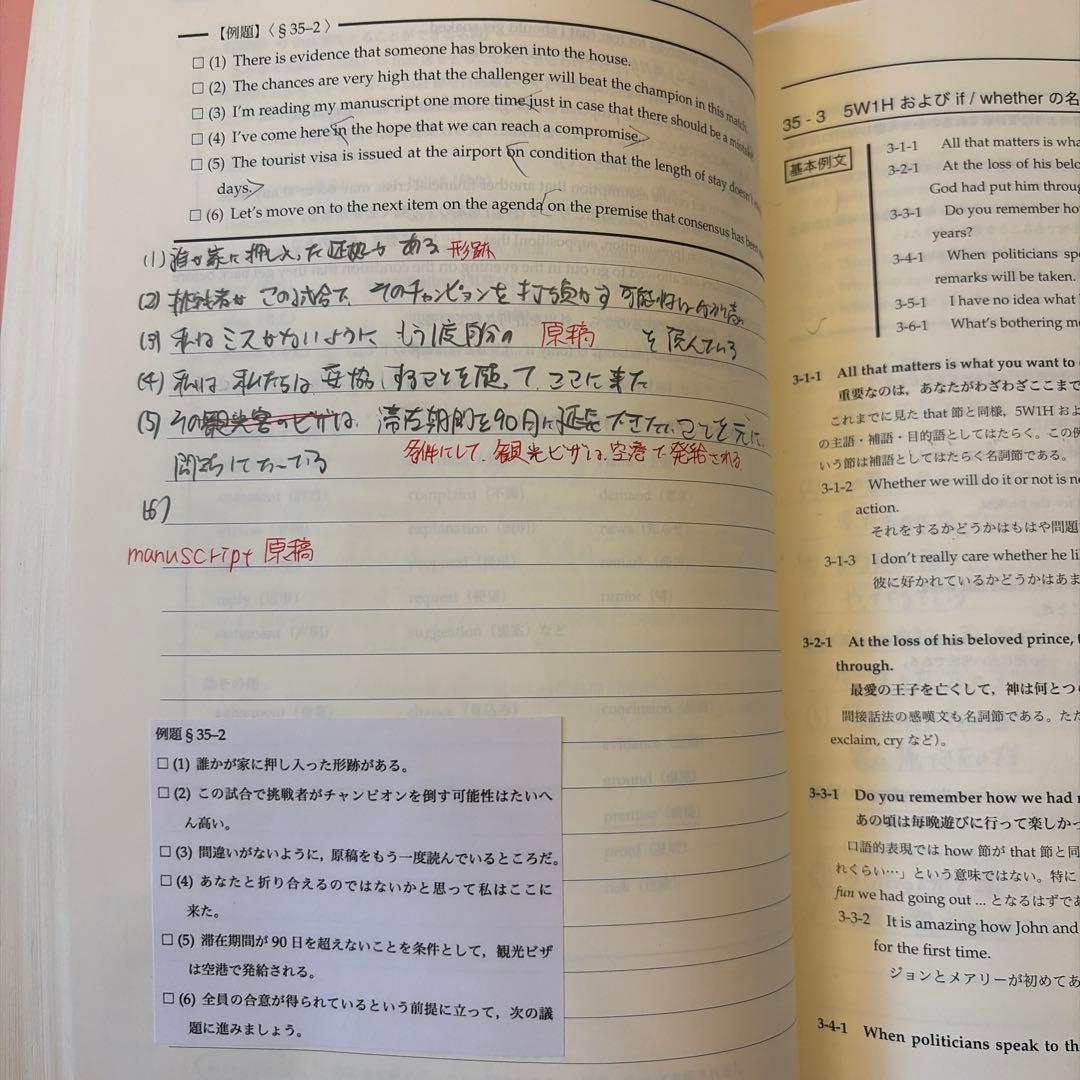 【例題】〈§35–2〉
□ (1) There is evidence that someone has broken into the house.
□ (2) The chances are very high that the challenger will beat the champion in this match.
□ (3) I'm reading my manuscript one more time just in case that there should be a mistake.
□ (4) I've come here in the hope that we can reach a compromise.
□ (5) The tourist visa is issued at the airport on condition that the length of stay doesn't
days.
□ (6) Let's move on to the next item on the agenda on the premise that consensus has been
(1) 誰か家に押し入った証拠がある 形跡
(2) 挑戦者が この試合で、そのチャンピオンを打ち負かす可能性は
(3) 私はミスがないように もう1度自分の 原稿 を読んでいる
(4) 私は、私たちは 妥協することを願って、ここに来た
(5) その観光客のビザは、滞在期間を90日に延長できないことを元に、
条件にして、観光ビザは、空港で発給される
(6)
manuscript 原稿
例題§35–2
□ (1) 誰かが家に押し入った形跡がある。
□ (2) この試合で挑戦者がチャンピオンを倒す可能性はたいへ
ん高い。
□ (3) 間違いがないように，原稿をもう一度読んでいるところだ。
□ (4) あなたと折り合えるのではないかと思って私はここに
来た。
□ (5) 滞在期間が 90 日を超えないことを条件として，観光ビザ
は空港で発給される。
□ (6) 全員の合意が得られているという前提に立って，次の議
題に進みましょう。
35 - 3 5W1H および if / whether の名
基本例文
3-1-1 All that matters is wha
3-2-1 At the loss of his belo
God had put him throug
3-3-1 Do you remember ho
years?
3-4-1 When politicians spe
remarks will be taken.
3-5-1 I have no idea what
3-6-1 What's bothering me
3-1-1 All that matters is what you want to
重要なのは，あなたがわざわざここまで
これまでに見た that 節と同様，5W1H およ
の主語・補語・目的語としてはたらく。この例
いう節は補語としてはたらく名詞節である。
3-1-2 Whether we will do it or not is no
action.
それをするかどうかはもはや問題
3-1-3 I don't really care whether he li
彼に好かれているかどうかはあま
3-2-1 At the loss of his beloved prince, t
through.
最愛の王子を亡くして，神は何とつら
間接話法の感嘆文も名詞節である。ただ
exclaim, cry など)。
3-3-1 Do you remember how we had
あの頃は毎晩遊びに行って楽しかっ
口語的表現では how 節が that 節と同
れくらい…」という意味ではない。特に
fun we had going out ... となるはずであ
3-3-2 It is amazing how John and
for the first time.
ジョンとメアリーが初めてあ
3-4-1 When politicians speak to th